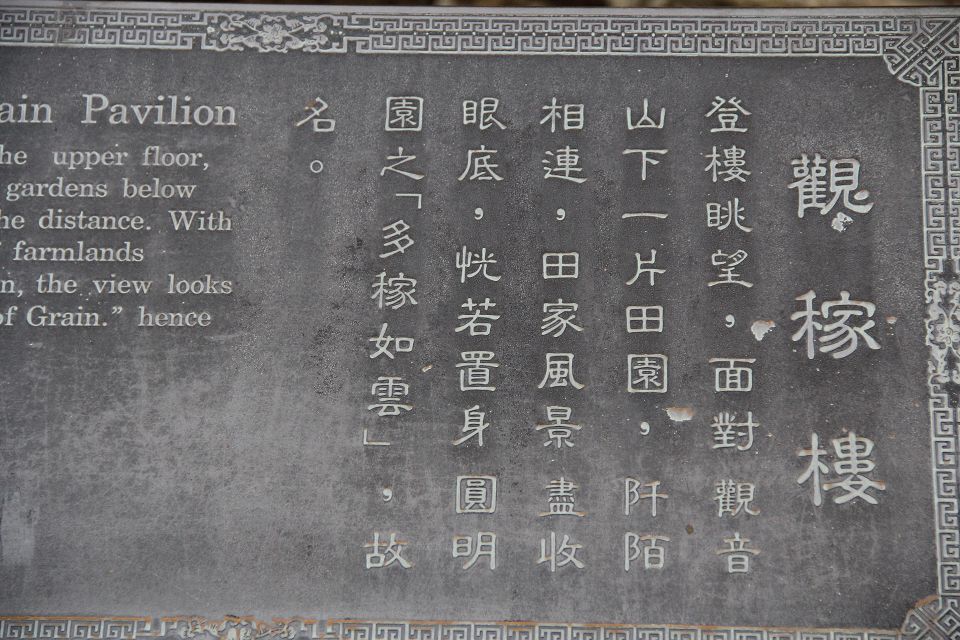 觀稼樓
登樓眺望，面對觀音
山下一片田園，阡陌
相連，田家風景盡收
眼底，恍若置身圓明
園之「多稼如雲」，故
名。
ain Pavilion
he upper floor,
gardens below
he distance. With
f farmlands
n, the view looks
of Grain.” hence